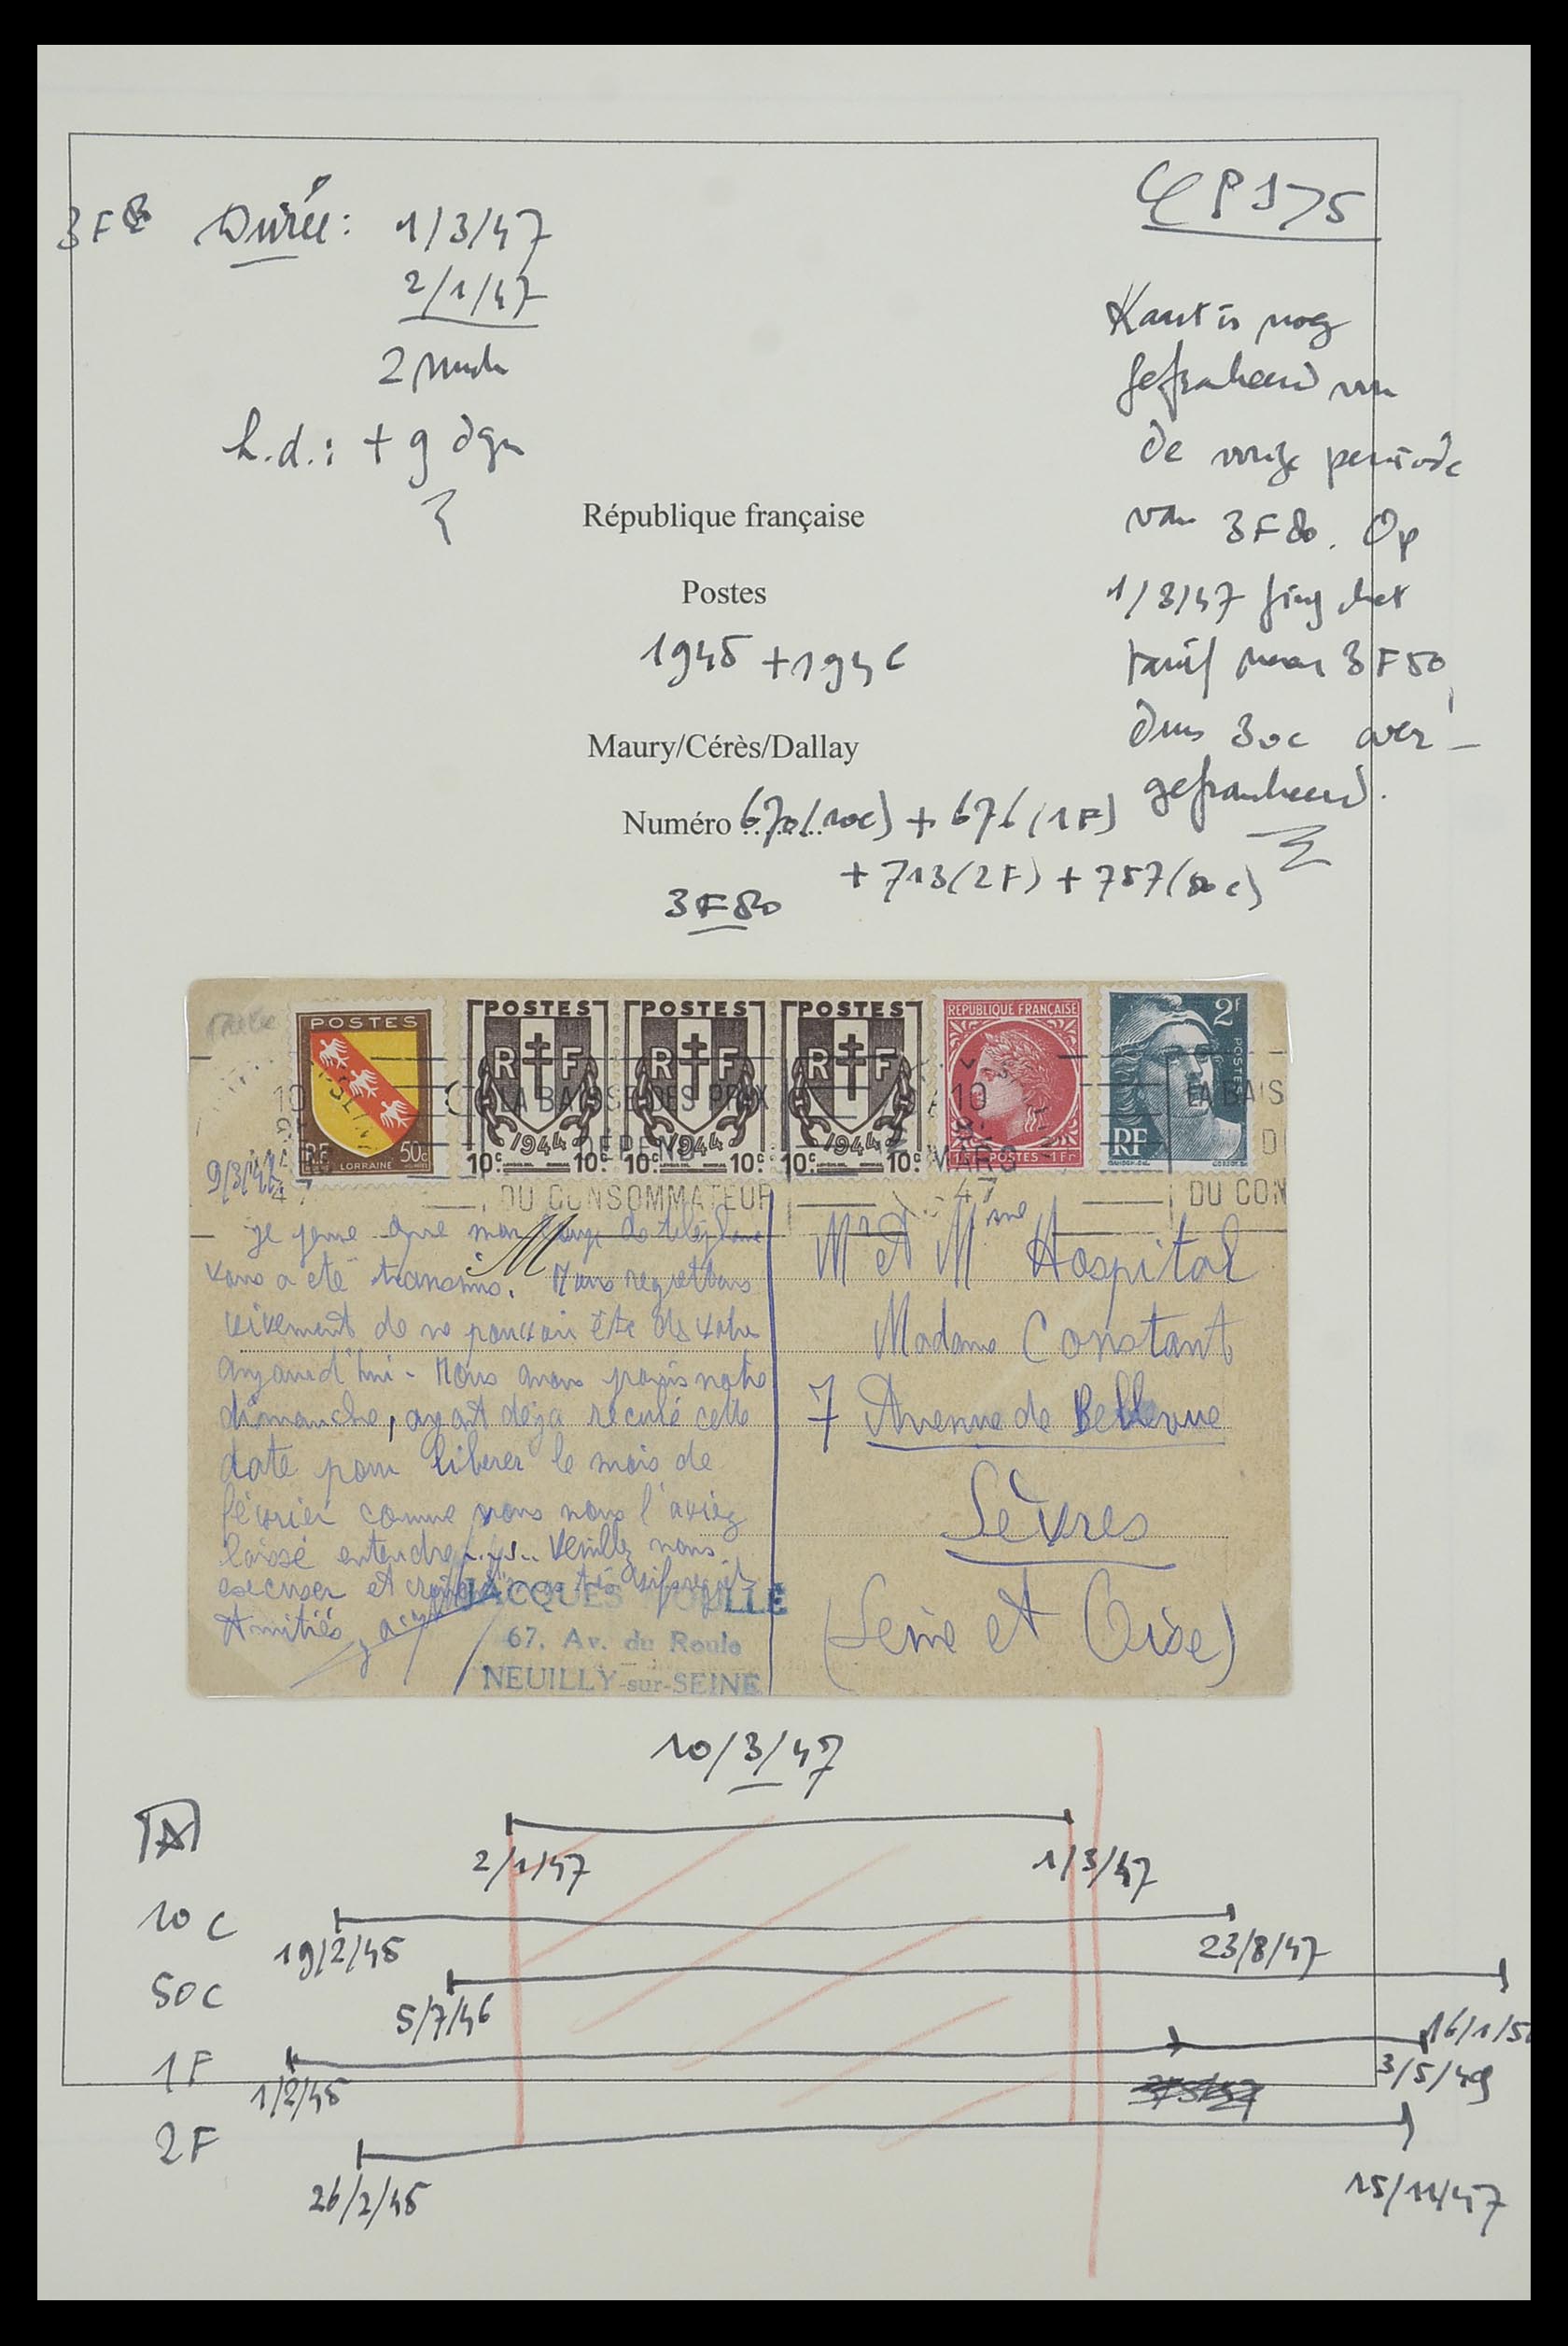 3F80 Durée: 1/3/47
2/1/47
2 mnde
h.d.: + 9 dgn
CP 175
Kaart is nog
gefrankeerd van
de vorige periode
van 3F80. Op
1/3/47 ging het
tarief naar 3F50,
dus 30c over-
gefrankeerd.
République française
Postes
1945 + 1946
Maury/Cérès/Dallay
Numéro 670(10c) + 676(1F)
+ 713(2F) + 757(50c)
3F80
POSTES
RF
LORRAINE
50c
POSTES
RF
1944
10c 10c
POSTES
RF
1944
10c 10c
POSTES
RF
1944
10c 10c
REPUBLIQUE FRANÇAISE
POSTES 1Fr
2f
POSTES
RF
LA BAISSE DES PRIX
DEPEND
DU CONSOMMATEUR
10
MARS
47
LA BAIS
D
DU CON
9/3/47
Je pense que mon de téléphone
vous a été transmis. Nous regrettons
vivement de ne pouvoir être des votres
aujourd'hui. Nous avons promis notre
dimanche, ayant déjà reculé cette
date pour libérer le mois de
février comme vous nous l'aviez
laissé entendre..... Veuillez nous
excuser et
Amitiés
Mr et Mme Hospital
Madame Constant
7 Avenue de Bellevue
Sèvres
(Seine et Oise)
JACQUES
67, Av. du Roule
NEUILLY-sur-SEINE
10/3/47
TA
2/1/47 1/3/47
10c
19/2/45 23/8/47
50c
5/7/46 16/1/5
1F
1/2/45 3/5/49
2F
26/2/45 15/11/47